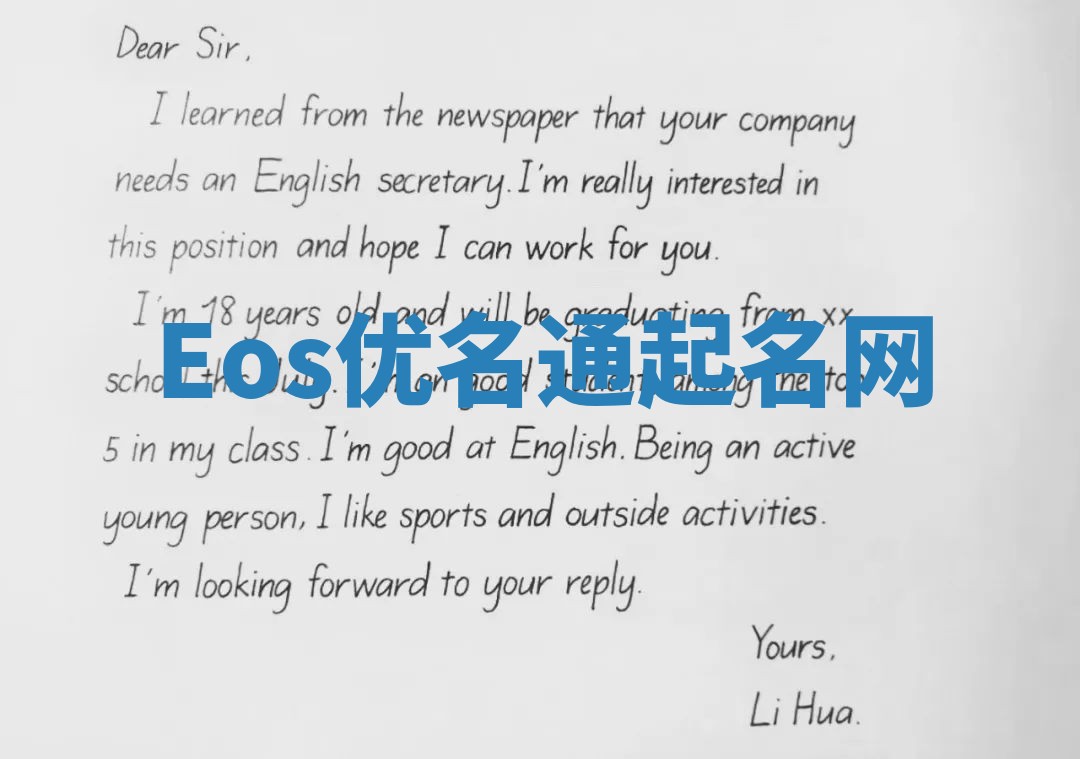 Dear Sir,
I learned from the newspaper that your company
needs an English secretary. I'm really interested in
this position and hope I can work for you.
I'm 18 years old and will be graduating from xx
Eos优名通起名网
school this July. I'm an good student among the top
5 in my class. I'm good at English. Being an active
young person, I like sports and outside activities.
I'm looking forward to your reply.
Yours,
Li Hua.